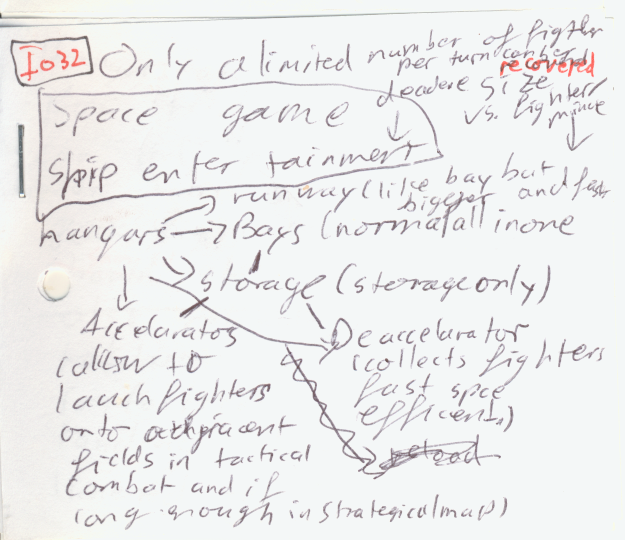 Io32
Only a limited number of figther
per turn can be
recovered
size
vs. fighters
Space game
Ship entertainment
runway (like bay but
bigger and faster
hangars
Bays (normal all in one
Storage (storage only)
Accelarators
(allow to
lauch fighters
onto adjracent
fields in tactical
combat and if
long enough in strategical map)
Deaccelarator
(collects fighters
fast space
efficient)